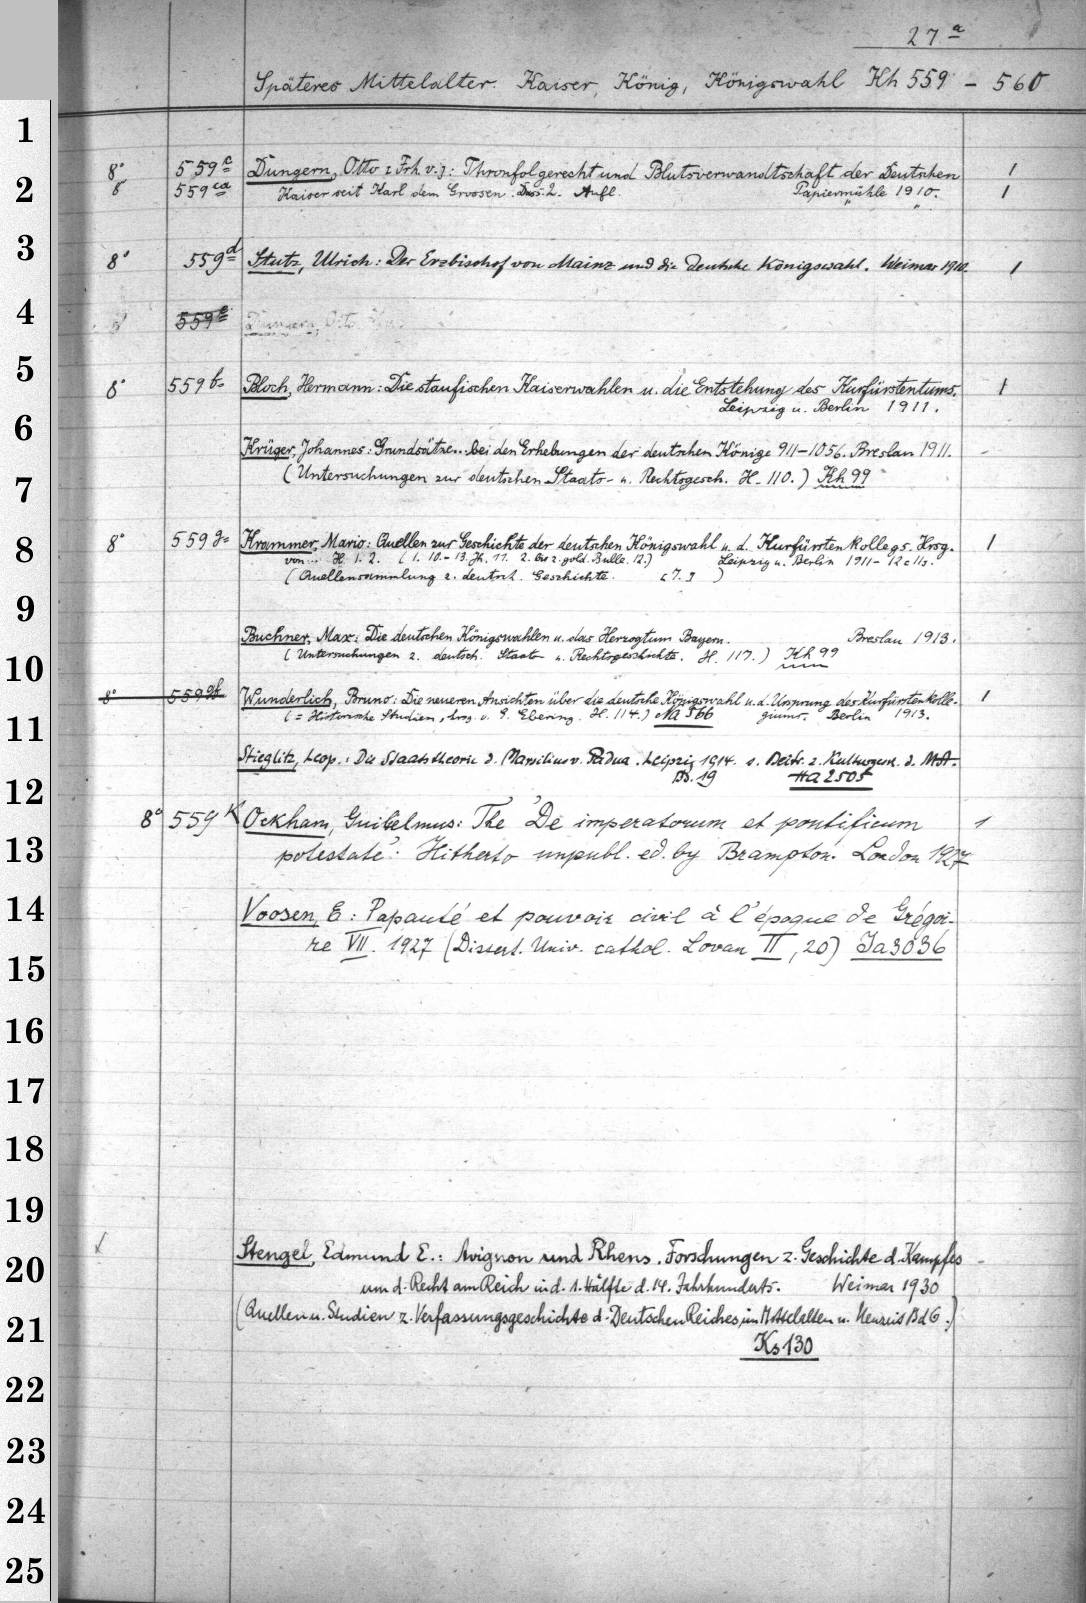 27 a
Späteres Mittelalter. Kaiser, König, Königswahl Kh 559 - 560
1
8° 559 c Dungern, Otto [Frh. v.]: Thronfolgerecht und Blutsverwandtschaft der Deutschen 1
2
8° 559 ca Kaiser seit Karl dem Grossen. 2. Aufl. Papiermühle 1910. 1
" "
3
8° 559 d Stutz, Ulrich: Der Erzbischof von Mainz und die deutsche Königswahl. Weimar 1910. 1
4
8° 559 e Dungern, Otto
5
8° 559 f. Bloch, Hermann: Die staufischen Kaiserwahlen u. die Entstehung des Kurfürstentums. 1
Leipzig u. Berlin 1911.
6
Krüger, Johannes: Grundsätze... bei den Erhebungen der deutschen Könige 911-1056. Breslau 1911. -
7
(Untersuchungen zur deutschen Staats- u. Rechtsgesch. H. 110.) Kh 99
8
8° 559 g. Krammer, Mario: Quellen zur Geschichte der deutschen Königswahl u. d. Kurfürstenkollegs. Hrsg. 1
von... H. 1. 2. (1. 10.-13. Jh. 11. 2. bis z. gold. Bulle. 12.) Leipzig u. Berlin 1911-12 [11].
(Quellensammlung z. deutsch. Geschichte. [7.] )
9
Buchner, Max: Die deutschen Königswahlen u. das Herzogtum Bayern. Breslau 1913.
10
(Untersuchungen z. deutsch. Staats- u. Rechtsgeschichte. H. 117.) Kh 99
8° 559 gf Wunderlich, Bruno: Die neueren Ansichten über die deutsche Königswahl u. d. Ursprung des Kurfürstenkolle- 1
11
(= Historische Studien, hrsg. v. E. Ebering. H. 114.) Na 566 giums. Berlin 1913.
Stieglitz, Leop.: Die Staatstheorie d. Marsilius v. Padua. Leipzig 1914. s. Beitr. z. Kulturgesch. d. M.A.
12
Bd. 19 Ha 2505
8° 559 K Ockham, Guilelmus: The 'De imperatorum et pontificum 1
13
potestate': Hitherto unpubl. ed. by Brampton. London 1927
14
Voosen, E: Papauté et pouvoir civil à l'époque de Grégoi-
15
re VII. 1927 (Dissert. Univ. cathol. Lovan II, 20) Ja3036
16
17
18
19
Stengel, Edmund E.: Avignon und Rhens. Forschungen z. Geschichte d. Kampfes -
20
um d. Recht am Reich in d. 1. Hälfte d. 14. Jahrhunderts. Weimar 1930
21
(Quellen u. Studien z. Verfassungsgeschichte d. Deutschen Reiches im Mittelalter u. Neuzeit Bd 6.)
Ks 130
22
23
24
25